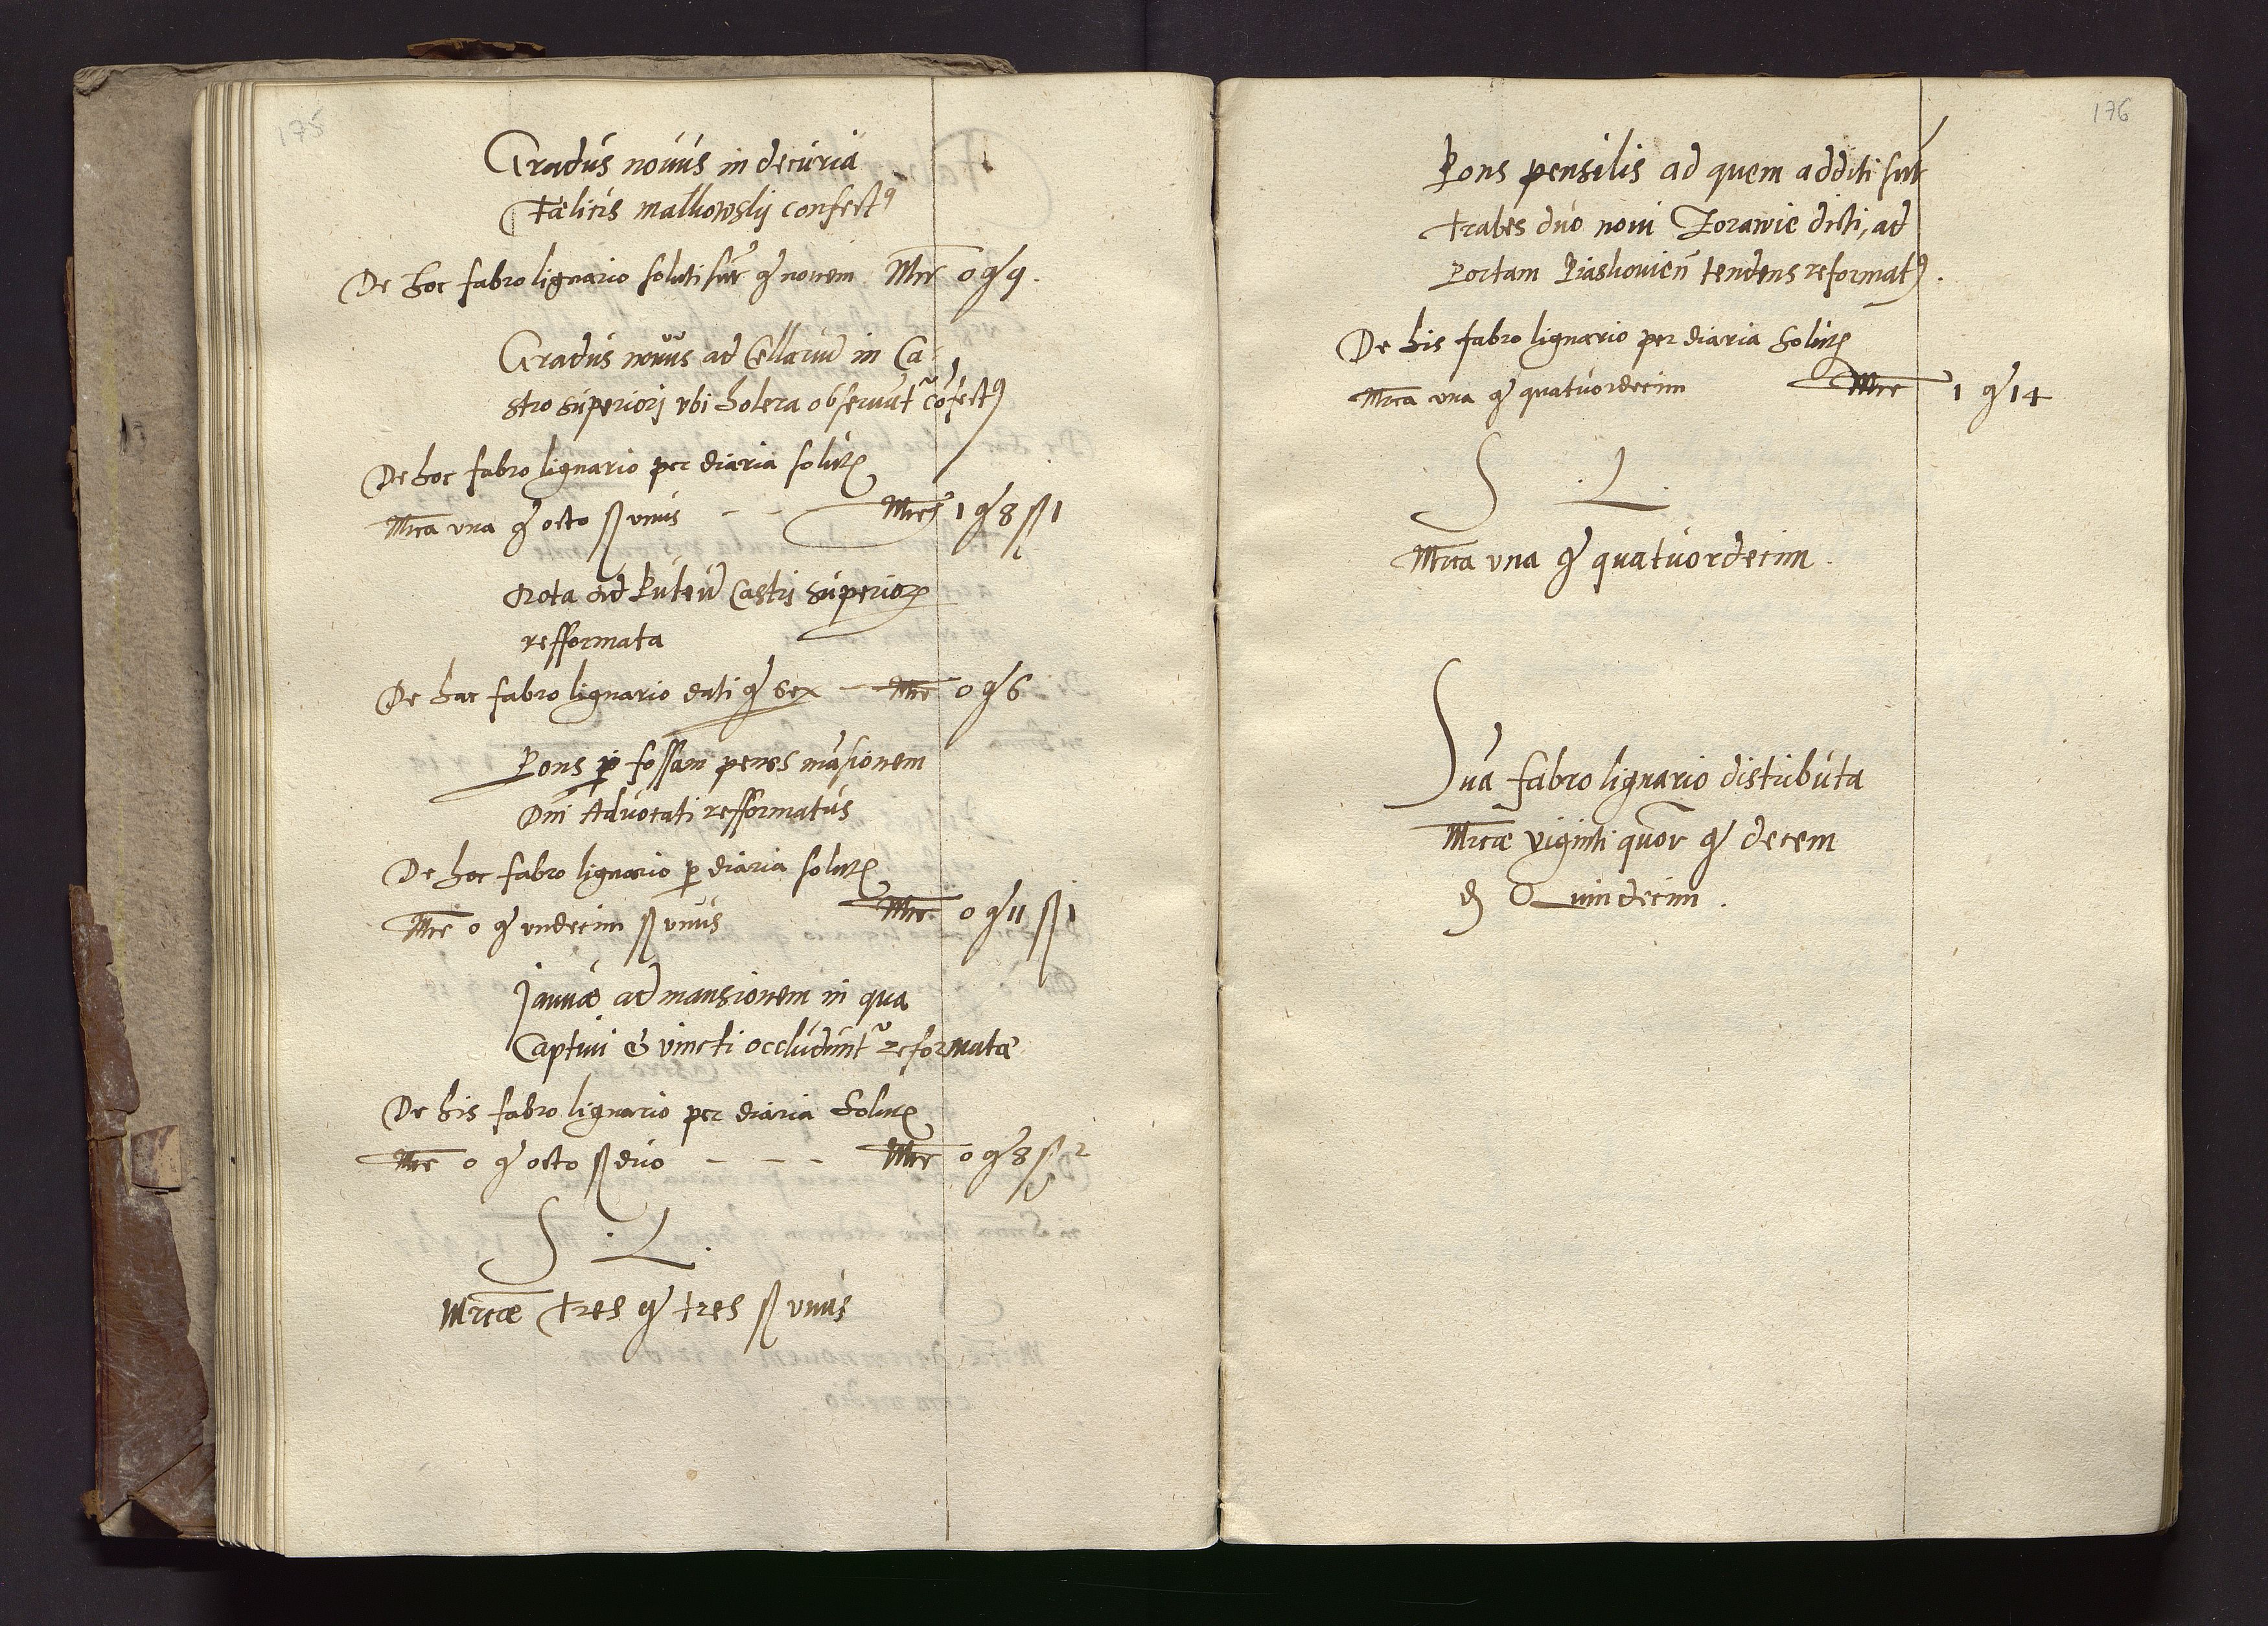 175
Gradus nouus in decuria
Fælicis malkowsky confectꝰ
De hoc fabro lignario soluti sūt gͬ nouem Mrc 0 gͬ 9.
Gradus nouus ad Cellariū in Ca-
stro superiori vbi holera obseruāt᷑ cōfectꝰ
De hoc fabro lignario per diaria solut̃
Mrca vna gͬ octo ß vnus - - Mrce 1 gͬ 8 ß 1
Rota ad Puteū Castri superioꝝ
refformata
De hac fabro lignario dati gͬ sex - Mrc 0 gͬ 6
Pons ꝑ fossam penes māsionem
Dni Aduocati refformatus
De hoc fabro lignario ꝑ diaria solut̃
Mrc 0 gͬ vndecim ß vnus Mrc 0 gͬ 11 ß 1
Januæ ad mansionem in qua
Captiui & vincti occludunt᷑ reformatæ
De his fabro lignario per diaria solut̃
Mrc 0 gͬ octo ß duo - - - Mrc 0 gͬ 8 ß 2
S . L .
Mrcæ tres gͬ tres ß vnus
176
Pons pensilis ad quem additi sūt
trabes duo noui Zorawie dicti, ad
Portam Piaskouieñ tendens reformatꝰ.
De his fabro lignario per diaria solut̃
Mrca vna gͬ quatuordecim Mrc 1 gͬ 14
S . L .
Mrca vna gͬ quatuordecim.
Suā fabro lignario distributa
Mrcæ viginti quor gͬ decem
₰ Quindecim.